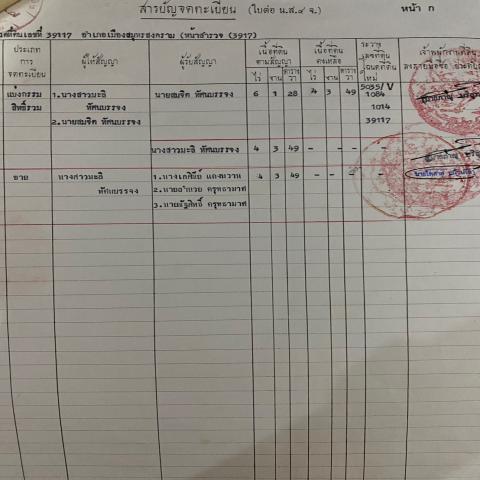 สารบัญจดทะเบียน (ใบต่อ น.ส.๔ จ.) หน้า ก
ที่ดินเลขที่ 39117 อำเภอเมืองสมุทรสงคราม (หน้าสำรวจ (3917)
ประเภท
การ
จดทะเบียน
ผู้ให้สัญญา
ผู้รับสัญญา
เนื้อที่ดิน
ตามสัญญา
ไร่ งาน ตาราง
วา
เนื้อที่ดิน
คงเหลือ
ไร่ งาน ตาราง
วา
ระวาง
เลขที่ดิน
โฉนดที่ดิน
ใหม่
เจ้าพนักงานที่ดิน
ลงลายมือชื่อ
แบ่งกรรม 1.นางสาวมะลิ นายสมจิต ทัศนบรรจง 6 1 28 4 3 49 5035/V
สิทธิ์รวม ทัศนบรรจง 1084
2.นายสมจิต ทัศนบรรจง 1014
39117
นางสาวมะลิ ทัศนบรรจง 4 3 49 - - - -
ขาย นางสาวมะลิ 4 3 49 - - - -
ทัศนบรรจง 2.นายอำนวย ครุฑธามาศ
3.นายณัฐสิทธิ์ ครุฑธามาศ